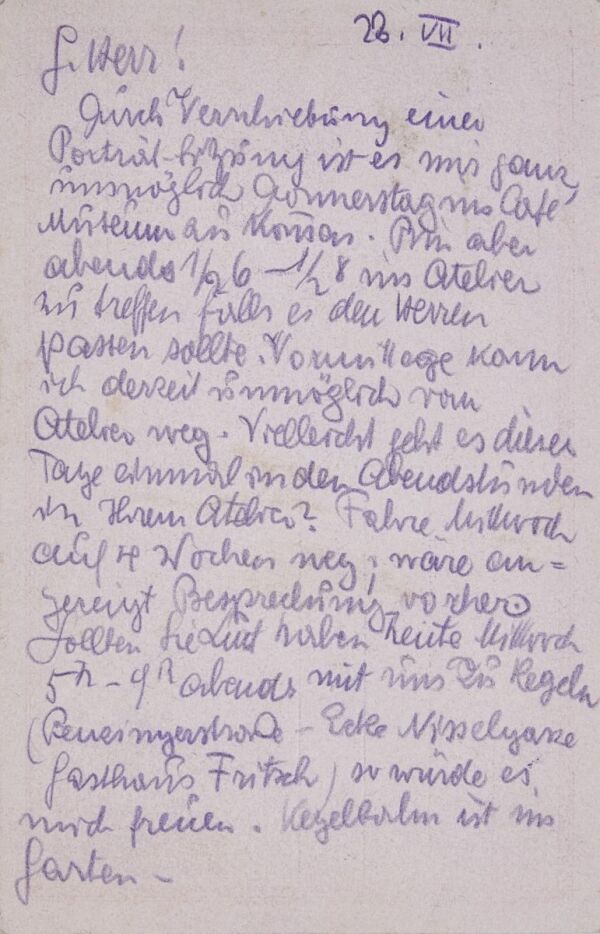 28. VII.
G. Herr!
Durch Verschiebung einer
Porträt-Sitzung ist es mir ganz
unmöglich Donnerstag ins Café
Museum zu kommen. Bin aber
abends 1/2 6 – 1/2 8 im Atelier
zu treffen falls es den Herren
passen sollte. Vormittage kann
ich derzeit unmöglich vom
Atelier weg. Vielleicht geht es dieser
Tage einmal in den Abendstunden
in Ihrem Atelier? Fahre Mittwoch
auf 4 Wochen weg; wäre an=
gezeigt Besprechung vorher.
Sollten Sie Lust haben heute Mittwoch
5h – 9h abends mit uns zu Kegeln
(Penzingerstraße – Ecke Nisselgasse
Gasthaus Fritsch) so würde es
mich freuen. Kegelbahn ist im
Garten –